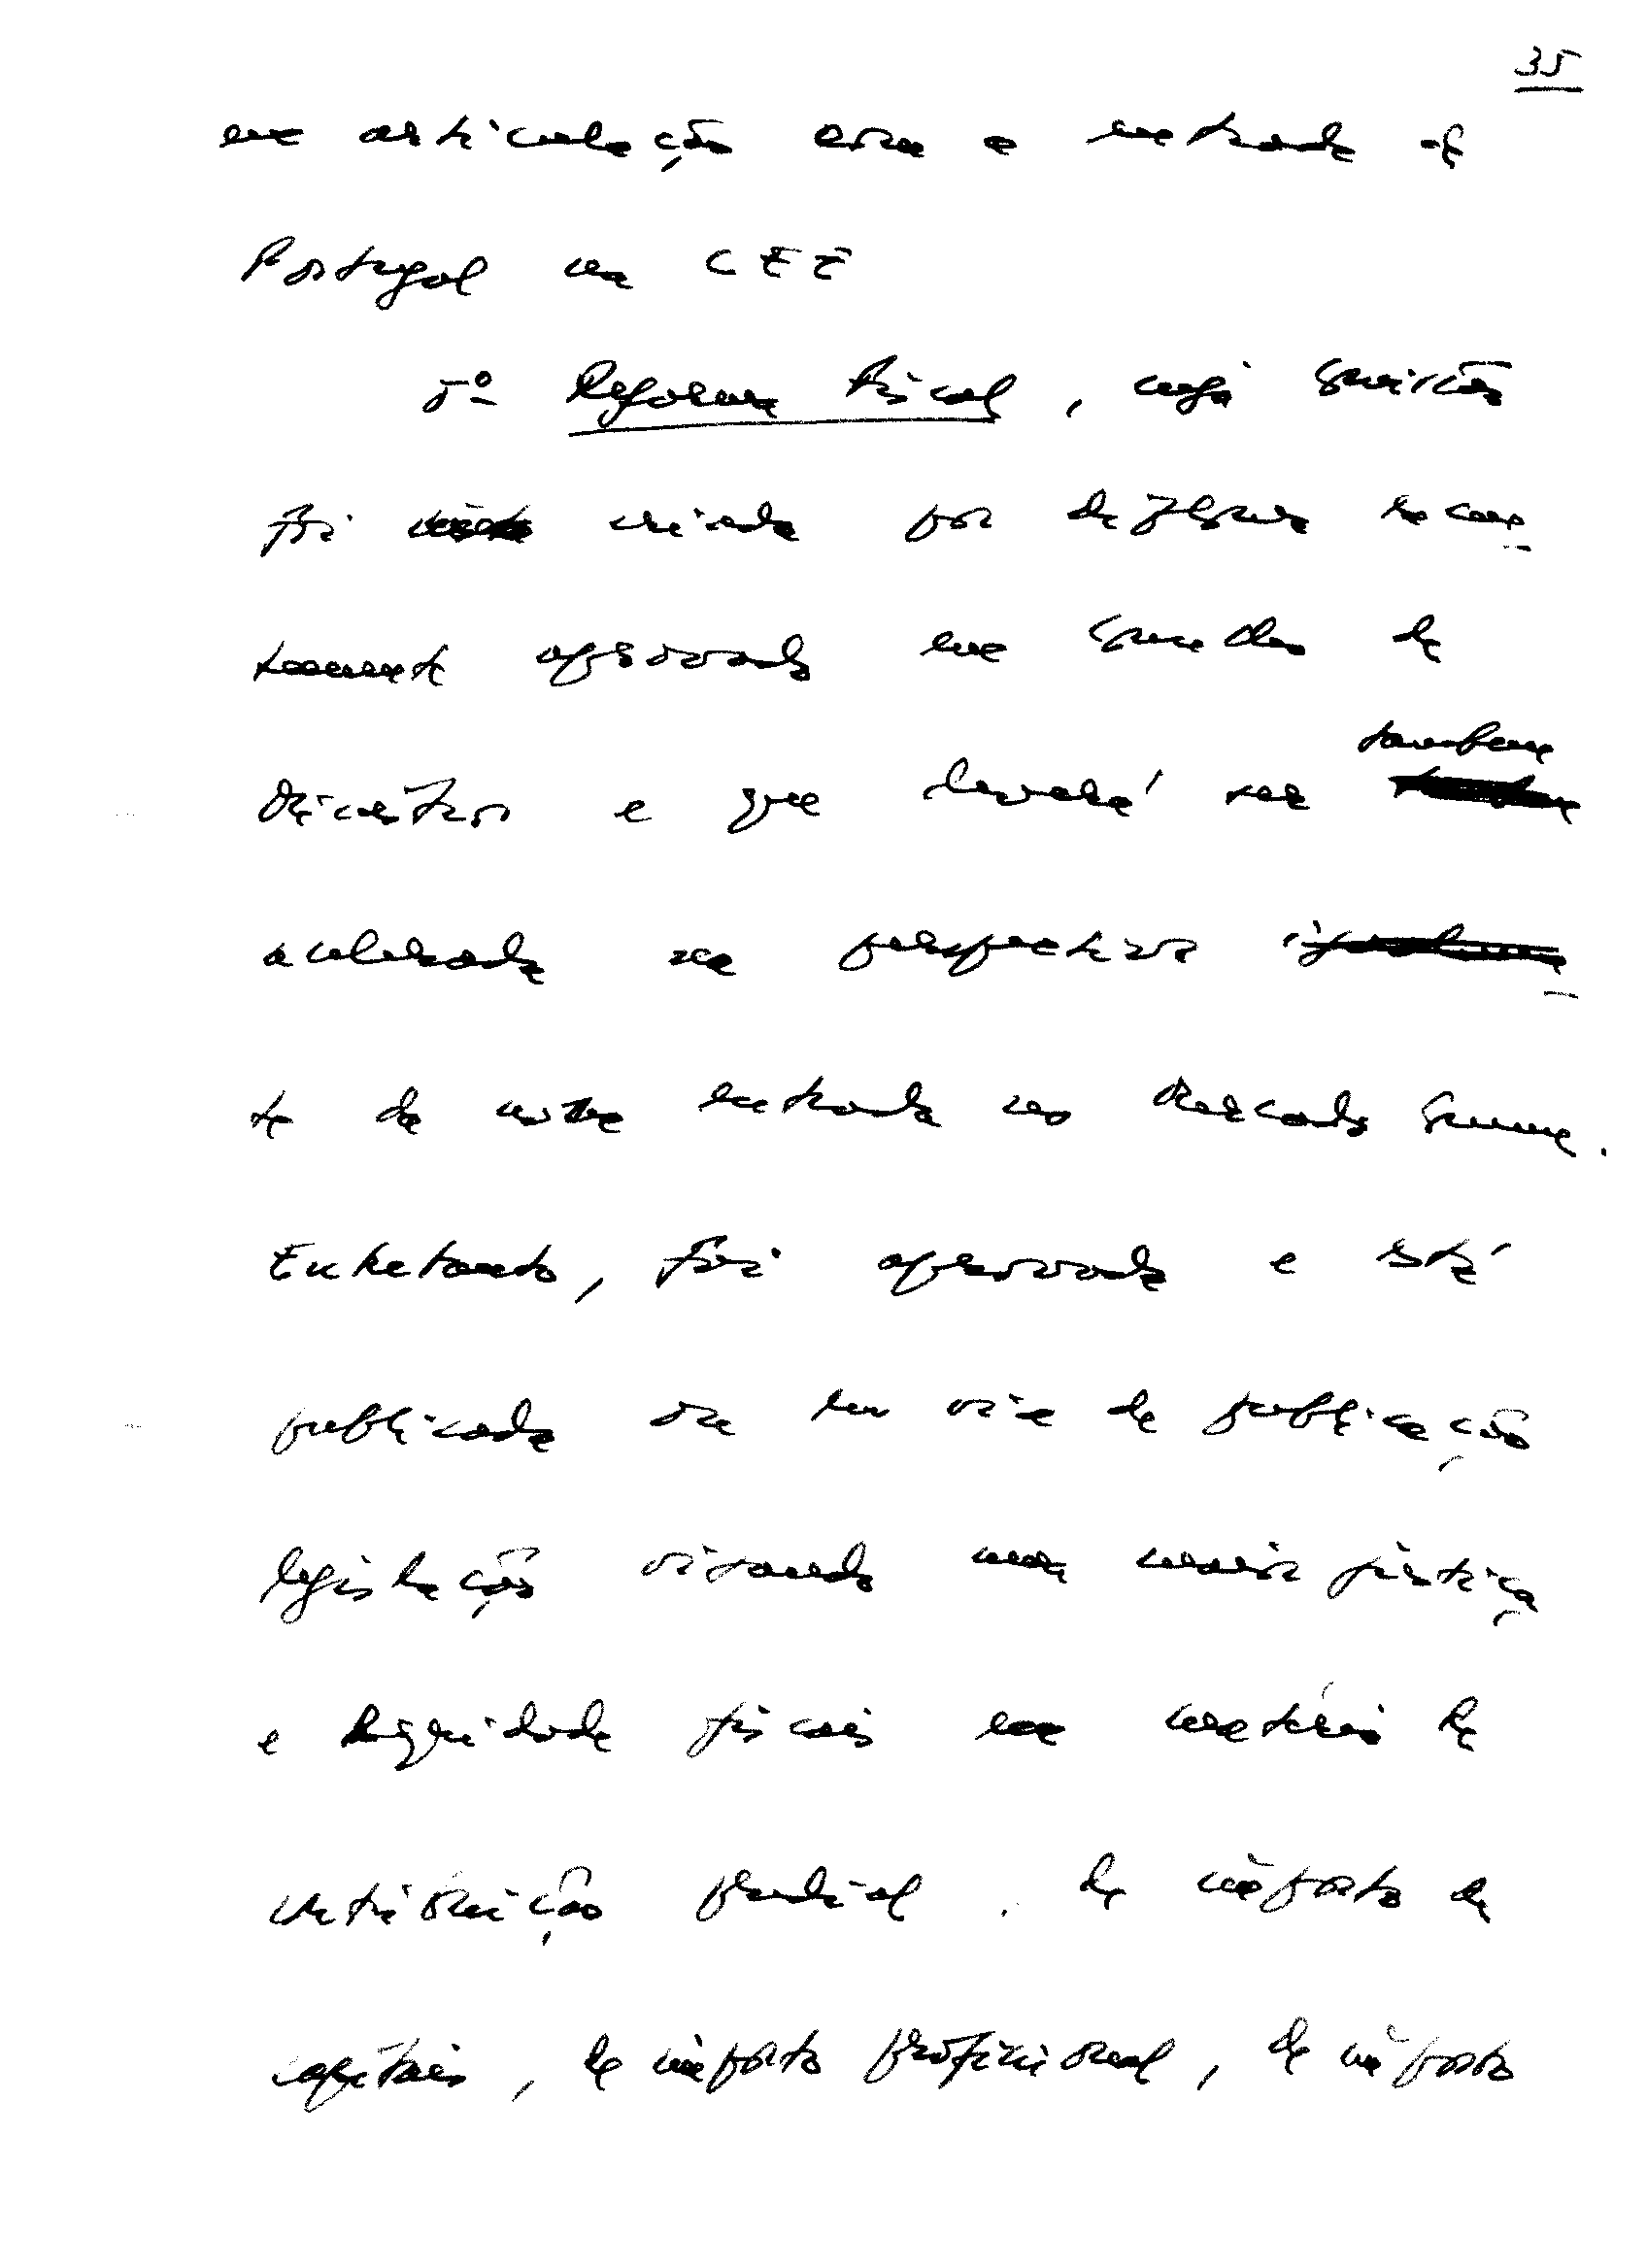 35
em articulação com a entrada de
Portugal na CEE
5º Reforma Fiscal, cuja Comissão
foi criada por diploma recen
temente aprovado em Conselho de
Ministros e que deverá ser também
acelerada na perspectiva
da nossa entrada no Mercado Comum.
Entretanto, foi aprovada e está
publicada ou em via de publicação
legislação visando uma maior justiça
e equidade fiscais em matéria de
contribuição predial, de imposto de
capitais, de imposto profissional, de imposto